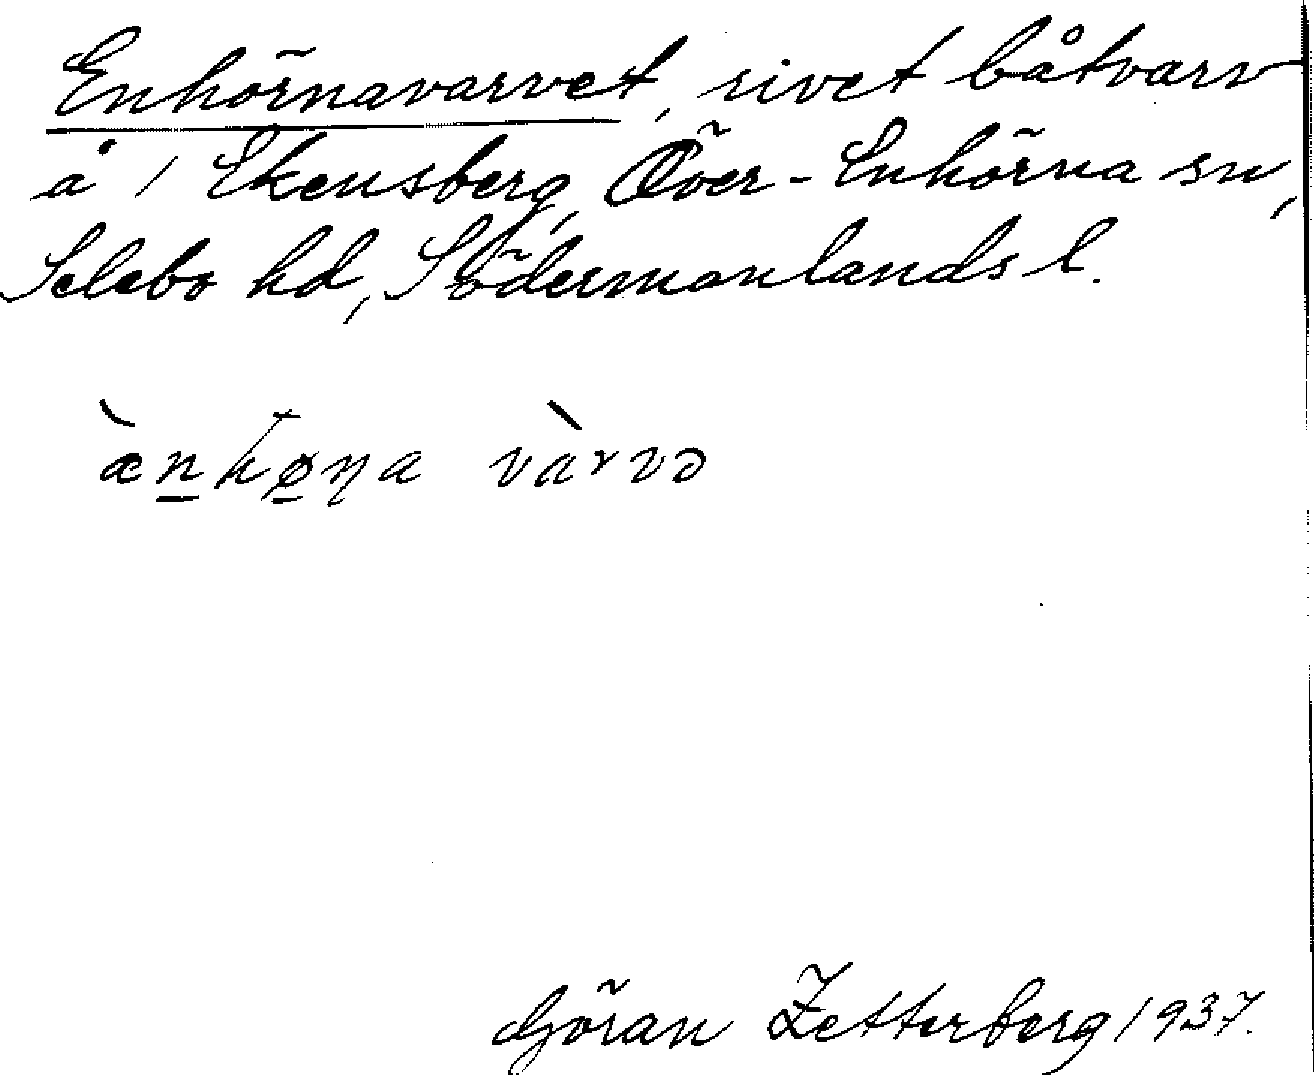 Enhörnavarvet, rivet båtvarv
å / Ekensberg, Över-Enhörna sn,
Selebo hd, Södermanlands l.
æ̀nhøɳa vàrvə
Göran Zetterberg 1937.